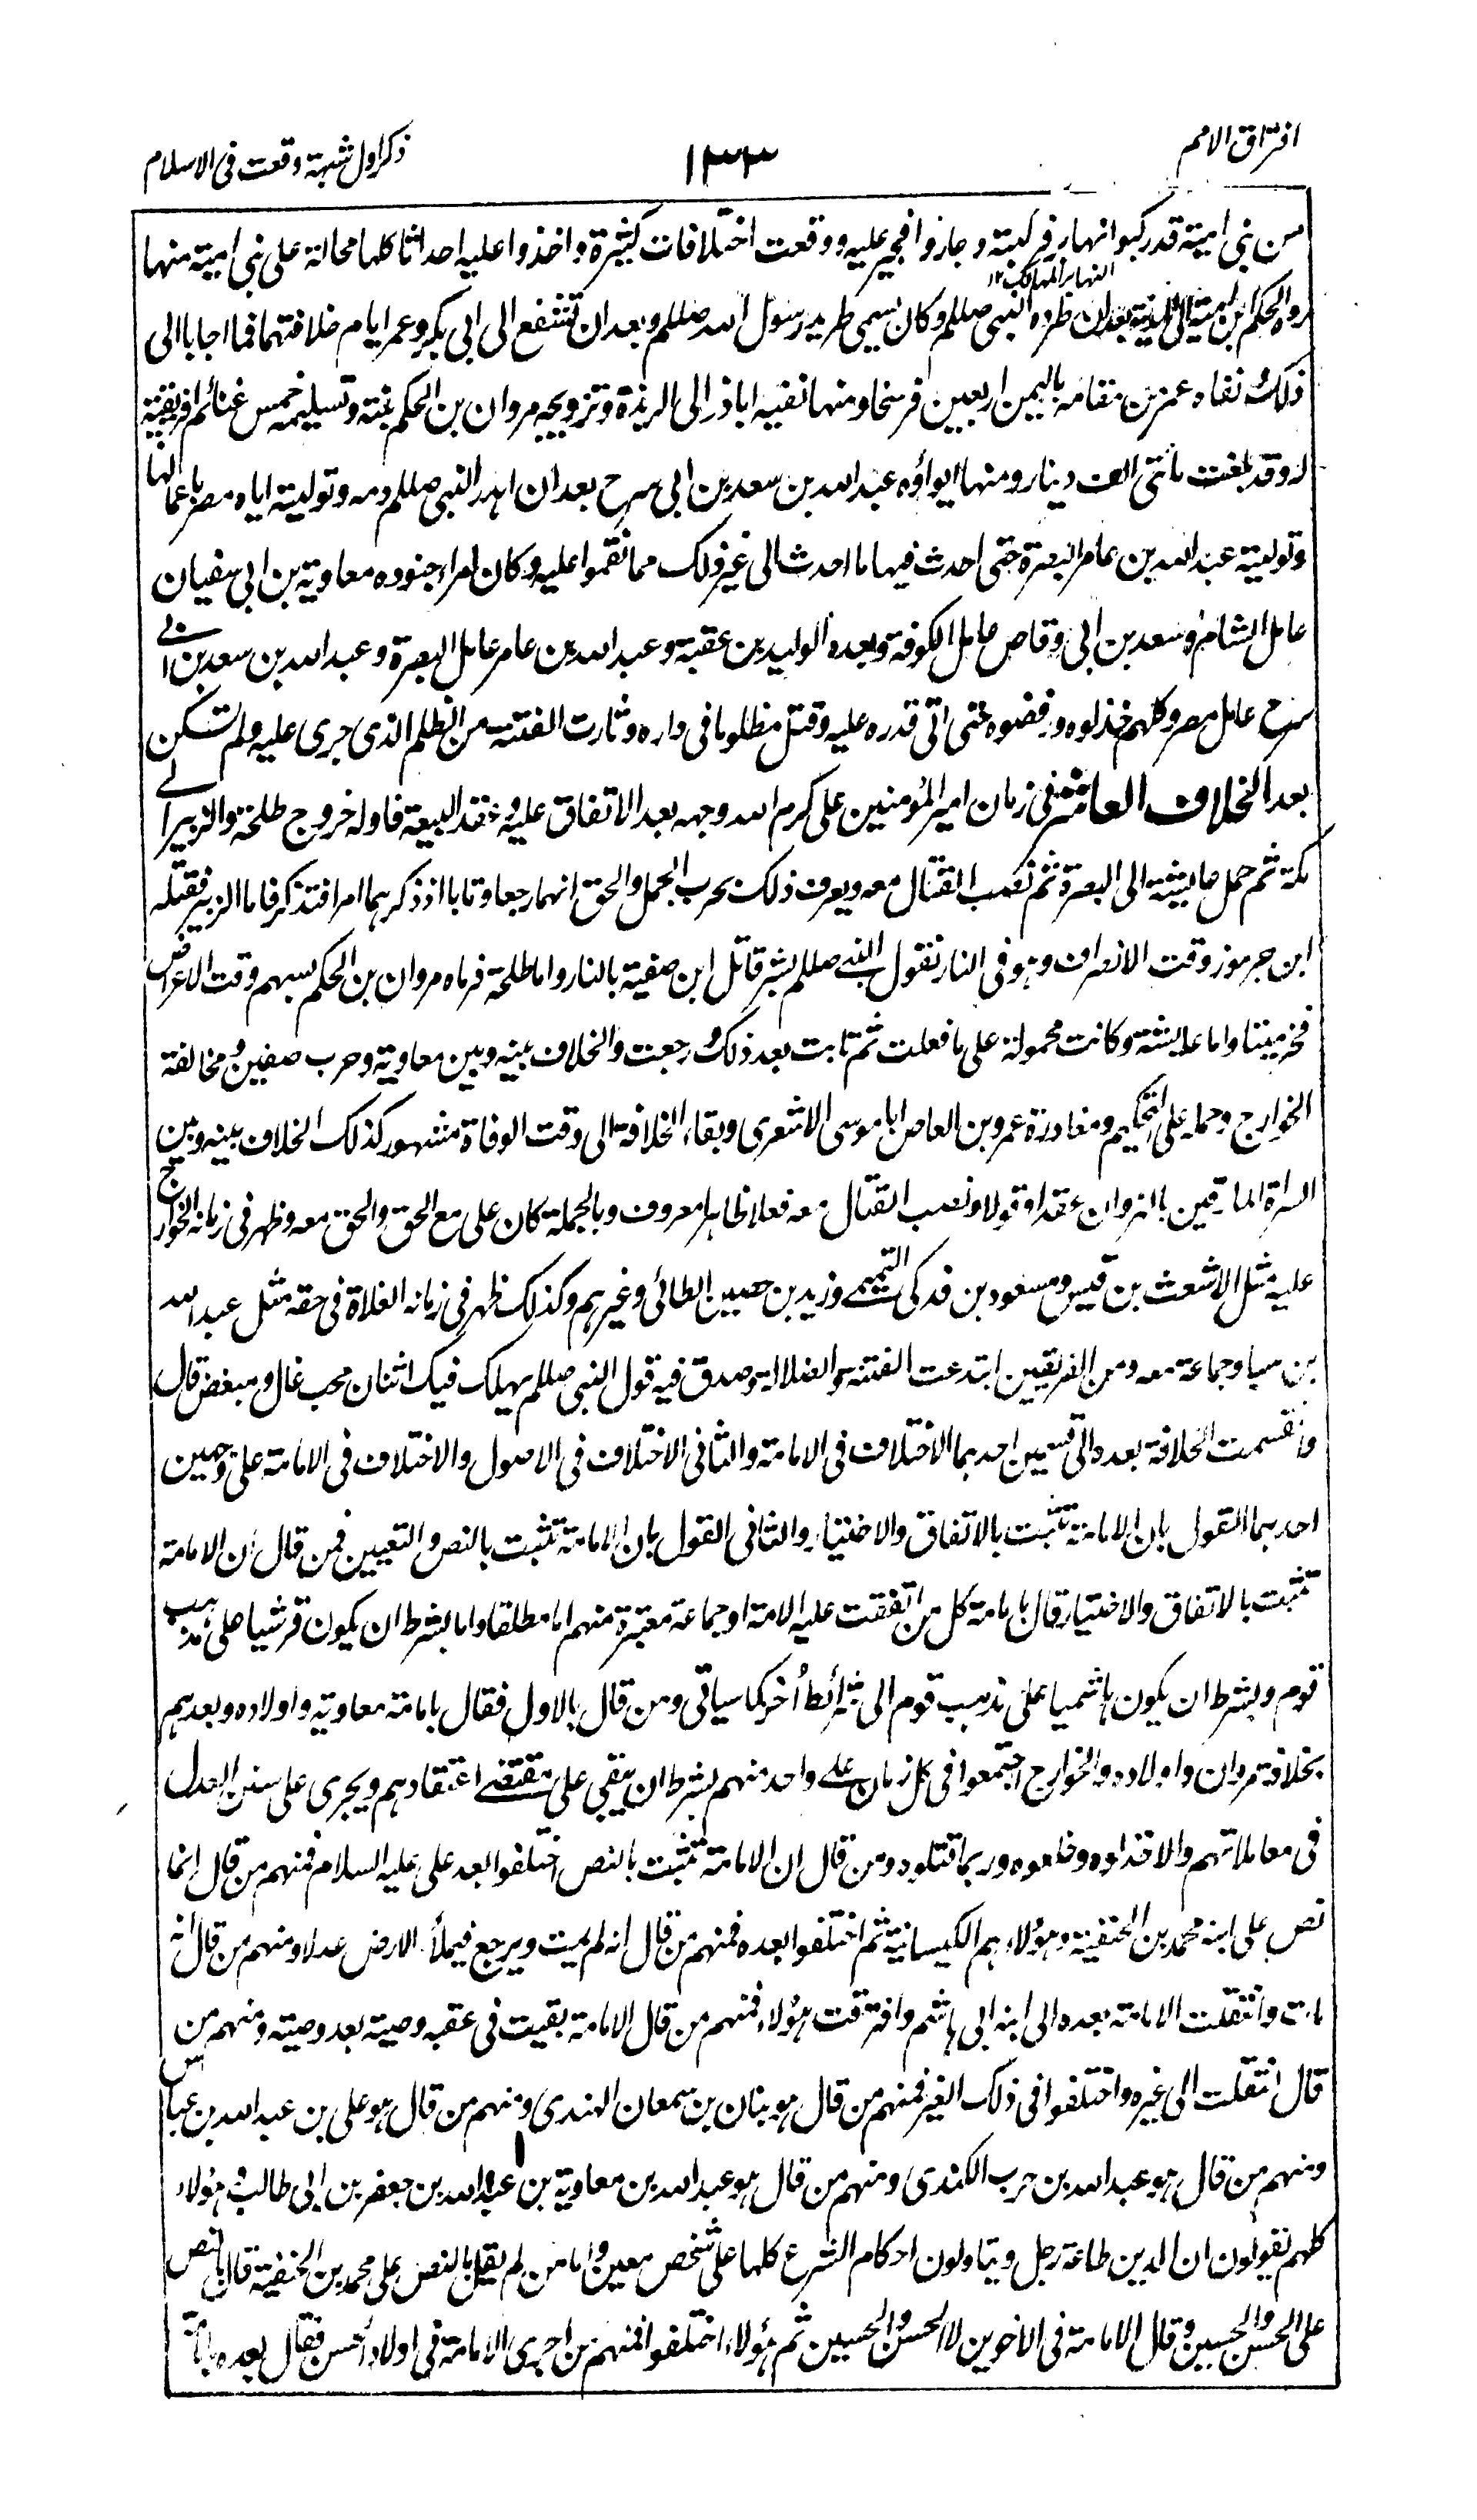 افتراق الامم
١٣٣
ذكر اول شبهة وقعت فى الاسلام
من بنى امية قد ركبوا نهابر فركبته وجاروا فجير عليه ووقعت اختلافات كثيرة واخذوا عليه احداثا كلها محالة على بنى امية منها
النهابر المهالك ١٢
رده الحكم بن امية الى المدينة بعد ان طرده النبى صللم وكان يسمى طريد رسول الله صللم وبعد ان تشفع الى ابى بكر وعمر ايام خلافتهما فما اجابا الى
ذلك ونفاه عمر من مقامه باليمن اربعين فرسخا ومنها نفيه اباذر الى الربذة وتزويجه مروان بن الحكم بنته وتسليمه خمس غنائم افريقية
له وقد بلغت مأتى الف دينار ومنها ايواؤه عبد الله بن سعد بن ابى سرح بعد ان اهدر النبى صللم دمه وتوليته اياه مصر باعمالها
وتوليته عبد الله بن عامر البصرة حتى احدث فيها ما احدث الى غير ذلك مما نقموا عليه وكان امراء جنوده معاوية بن ابى سفيان
عامل الشام وسعد بن ابى وقاص عامل الكوفة وبعده الوليد بن عقبة وعبد الله بن عامر عامل البصرة وعبد الله بن سعد بن ابى
سرح عامل مصر وكلهم خذلوه ورفضوه حتى اتى قدره عليه وقتل مظلوما فى داره وثارت الفتنة من الظلم الذى جرى عليه ولم تسكن
بعد الخلاف العاشر فى زمان امير المؤمنين على كرم الله وجهه بعد الاتفاق عليه وعقد البيعة فاوله خروج طلحة والزبير الى
مكة ثم حمل عايشة الى البصرة ثم نصب القتال معه ويعرف ذلك بحرب الجمل والحق انهما رجعا وتابا اذ ذكرهما امرا فتذكر فاما الزبير فقتله
ابن جرموز وقت الانصراف وهو فى النار لقول النبى صللم بشر قاتل ابن صفية بالنار واما طلحة فرماه مروان بن الحكم بسهم وقت الاعراض
فخر ميتا واما عايشة وكانت محمولة على ما فعلت ثم تابت بعد ذلك ورجعت والخلاف بينه وبين معاوية وحرب صفين ومخالفة
الخوارج وحمله على التحكيم ومغادرة عمرو بن العاص ابا موسى الاشعرى وبقاء الخلافة الى وقت الوفاة مشهور كذلك الخلاف بينه وبين
السراة المارقين بالنهروان عقدا وقولا ونصب القتال معه فعلا ظاهر معروف وبالجملة كان على مع الحق والحق معه وظهر فى زمانه الخوارج
عليه مثل الاشعث بن قيس ومسعود بن فدكى التميمى وزيد بن حصين الطائى وغيرهم وكذلك ظهر فى زمانه الغلاة فى حقه مثل عبد الله
بن سبا وجماعة معه ومن الفريقين ابتدعت الفتنة والضلالة وصدق فيه قول النبى صللم يهلك فيك اثنان محب غال ومبغض قال
وانقسمت الخلافة بعده الى قسمين احدهما الاختلاف فى الامامة والثانى الاختلاف فى الاصول والاختلاف فى الامامة على وجهين
احدهما القول بان الامامة تثبت بالاتفاق والاختيار والثانى القول بان الامامة تثبت بالنص والتعيين فمن قال ان الامامة
تثبت بالاتفاق والاختيار قال بامامة كل من اتفقت عليه الامة او جماعة معتبرة منهم اما مطلقا واما بشرط ان يكون قرشيا على مذهب
قوم وبشرط ان يكون هاشميا على مذهب قوم الى شرائط أخر كما سياتى ومن قال بالاول فقال بامامة معاوية واولاده وبعدهم
بخلافة مروان واولاده والخوارج اجتمعوا فى كل زمان على واحد منهم بشرط ان يبقى على مقتضى اعتقادهم ويجرى على سنن العدل
فى معاملاتهم والا خذلوه وخلعوه وربما قتلوه ومن قال ان الامامة تثبت بالنص اختلفوا بعد على عليه السلام فمنهم من قال انما
نص على ابنه محمد بن الحنفية وهؤلاء هم الكيسانية ثم اختلفوا بعده فمنهم من قال انه لم يمت ويرجع فيملأ الارض عدلا ومنهم من قال انه
مات وانتقلت الامامة بعده الى ابنه ابى هاشم وافترقت هؤلاء فمنهم من قال الامامة بقيت فى عقبه وصية بعد وصية ومنهم من
قال انتقلت الى غيره واختلفوا فى ذلك الغير فمنهم من قال هو بنان بن سمعان الهندى ومنهم من قال هو على بن عبد الله بن عباس
ومنهم من قال هو عبد الله بن حرب الكندى ومنهم من قال هو عبد الله بن معاوية بن عبد الله بن جعفر بن ابى طالب وهؤلاء
كلهم يقولون ان الدين طاعة رجل ويتاولون احكام الشرع كلها على شخص معين واما من لم يقل بالنص على محمد بن الحنفية قال بالنص
على الحسن والحسين وقال الامامة فى الاخوين لا الحسن والحسين ثم هؤلاء اختلفوا فمنهم من اجرى الامامة فى اولاد الحسن فقال بعده بامامة